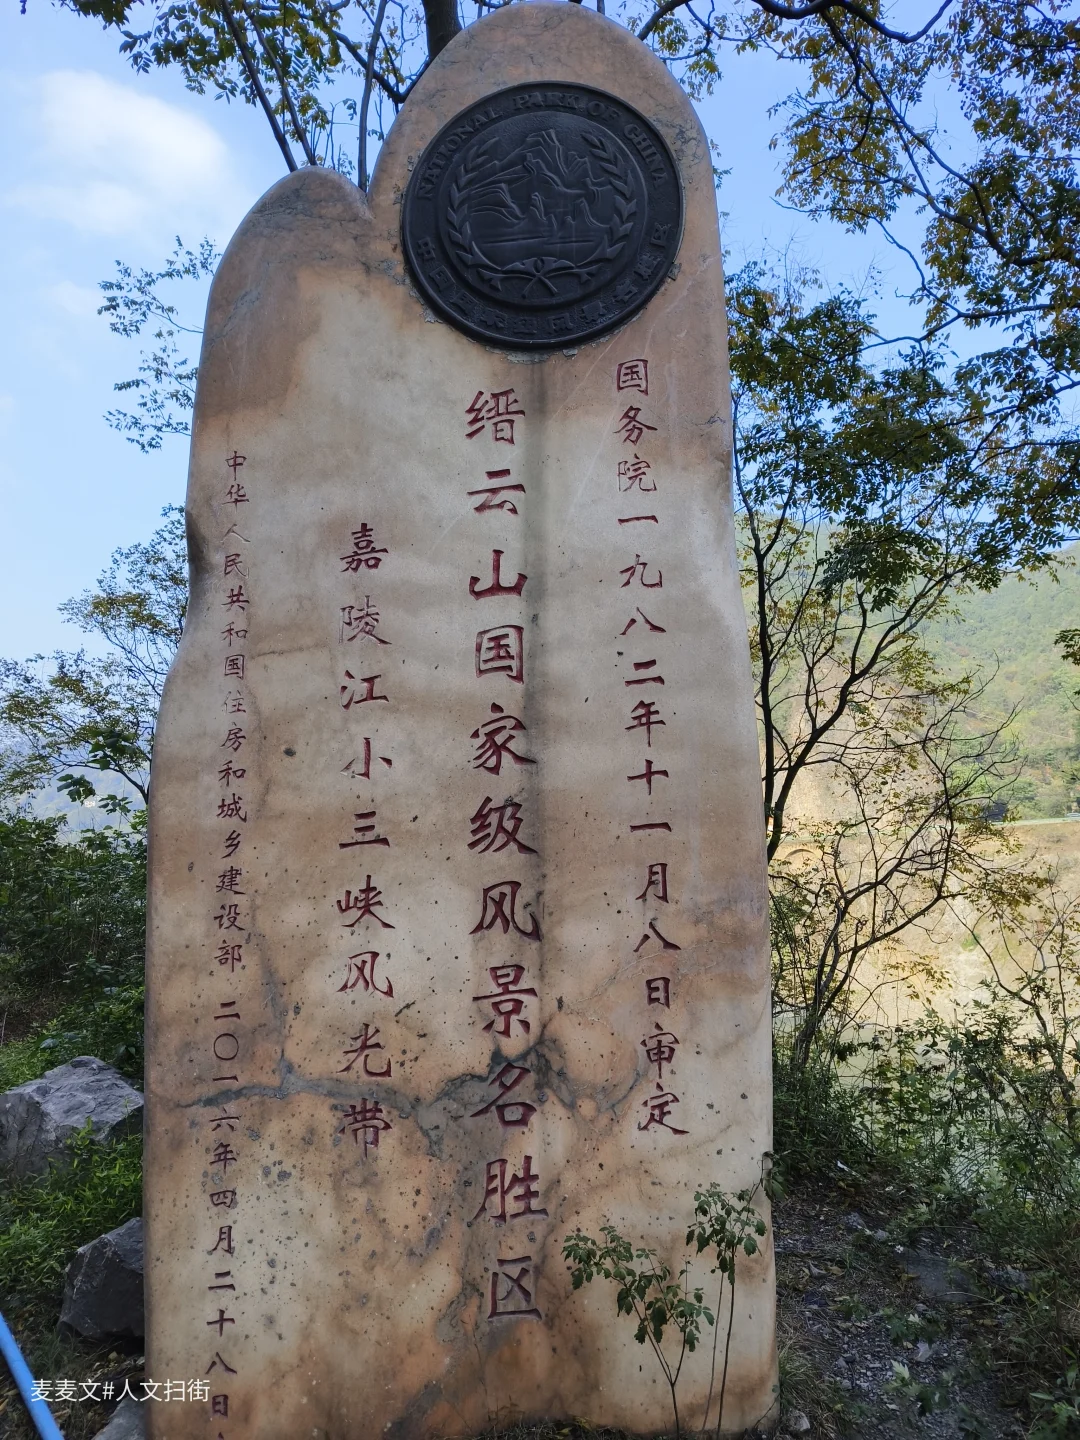 NATIONAL PARK OF CHINA
中国国家级风景名胜区
国务院一九八二年十一月八日审定
缙云山国家级风景名胜区
嘉陵江小三峡风光带
中华人民共和国住房和城乡建设部 二〇一六年四月二十八日
麦麦文#人文扫街